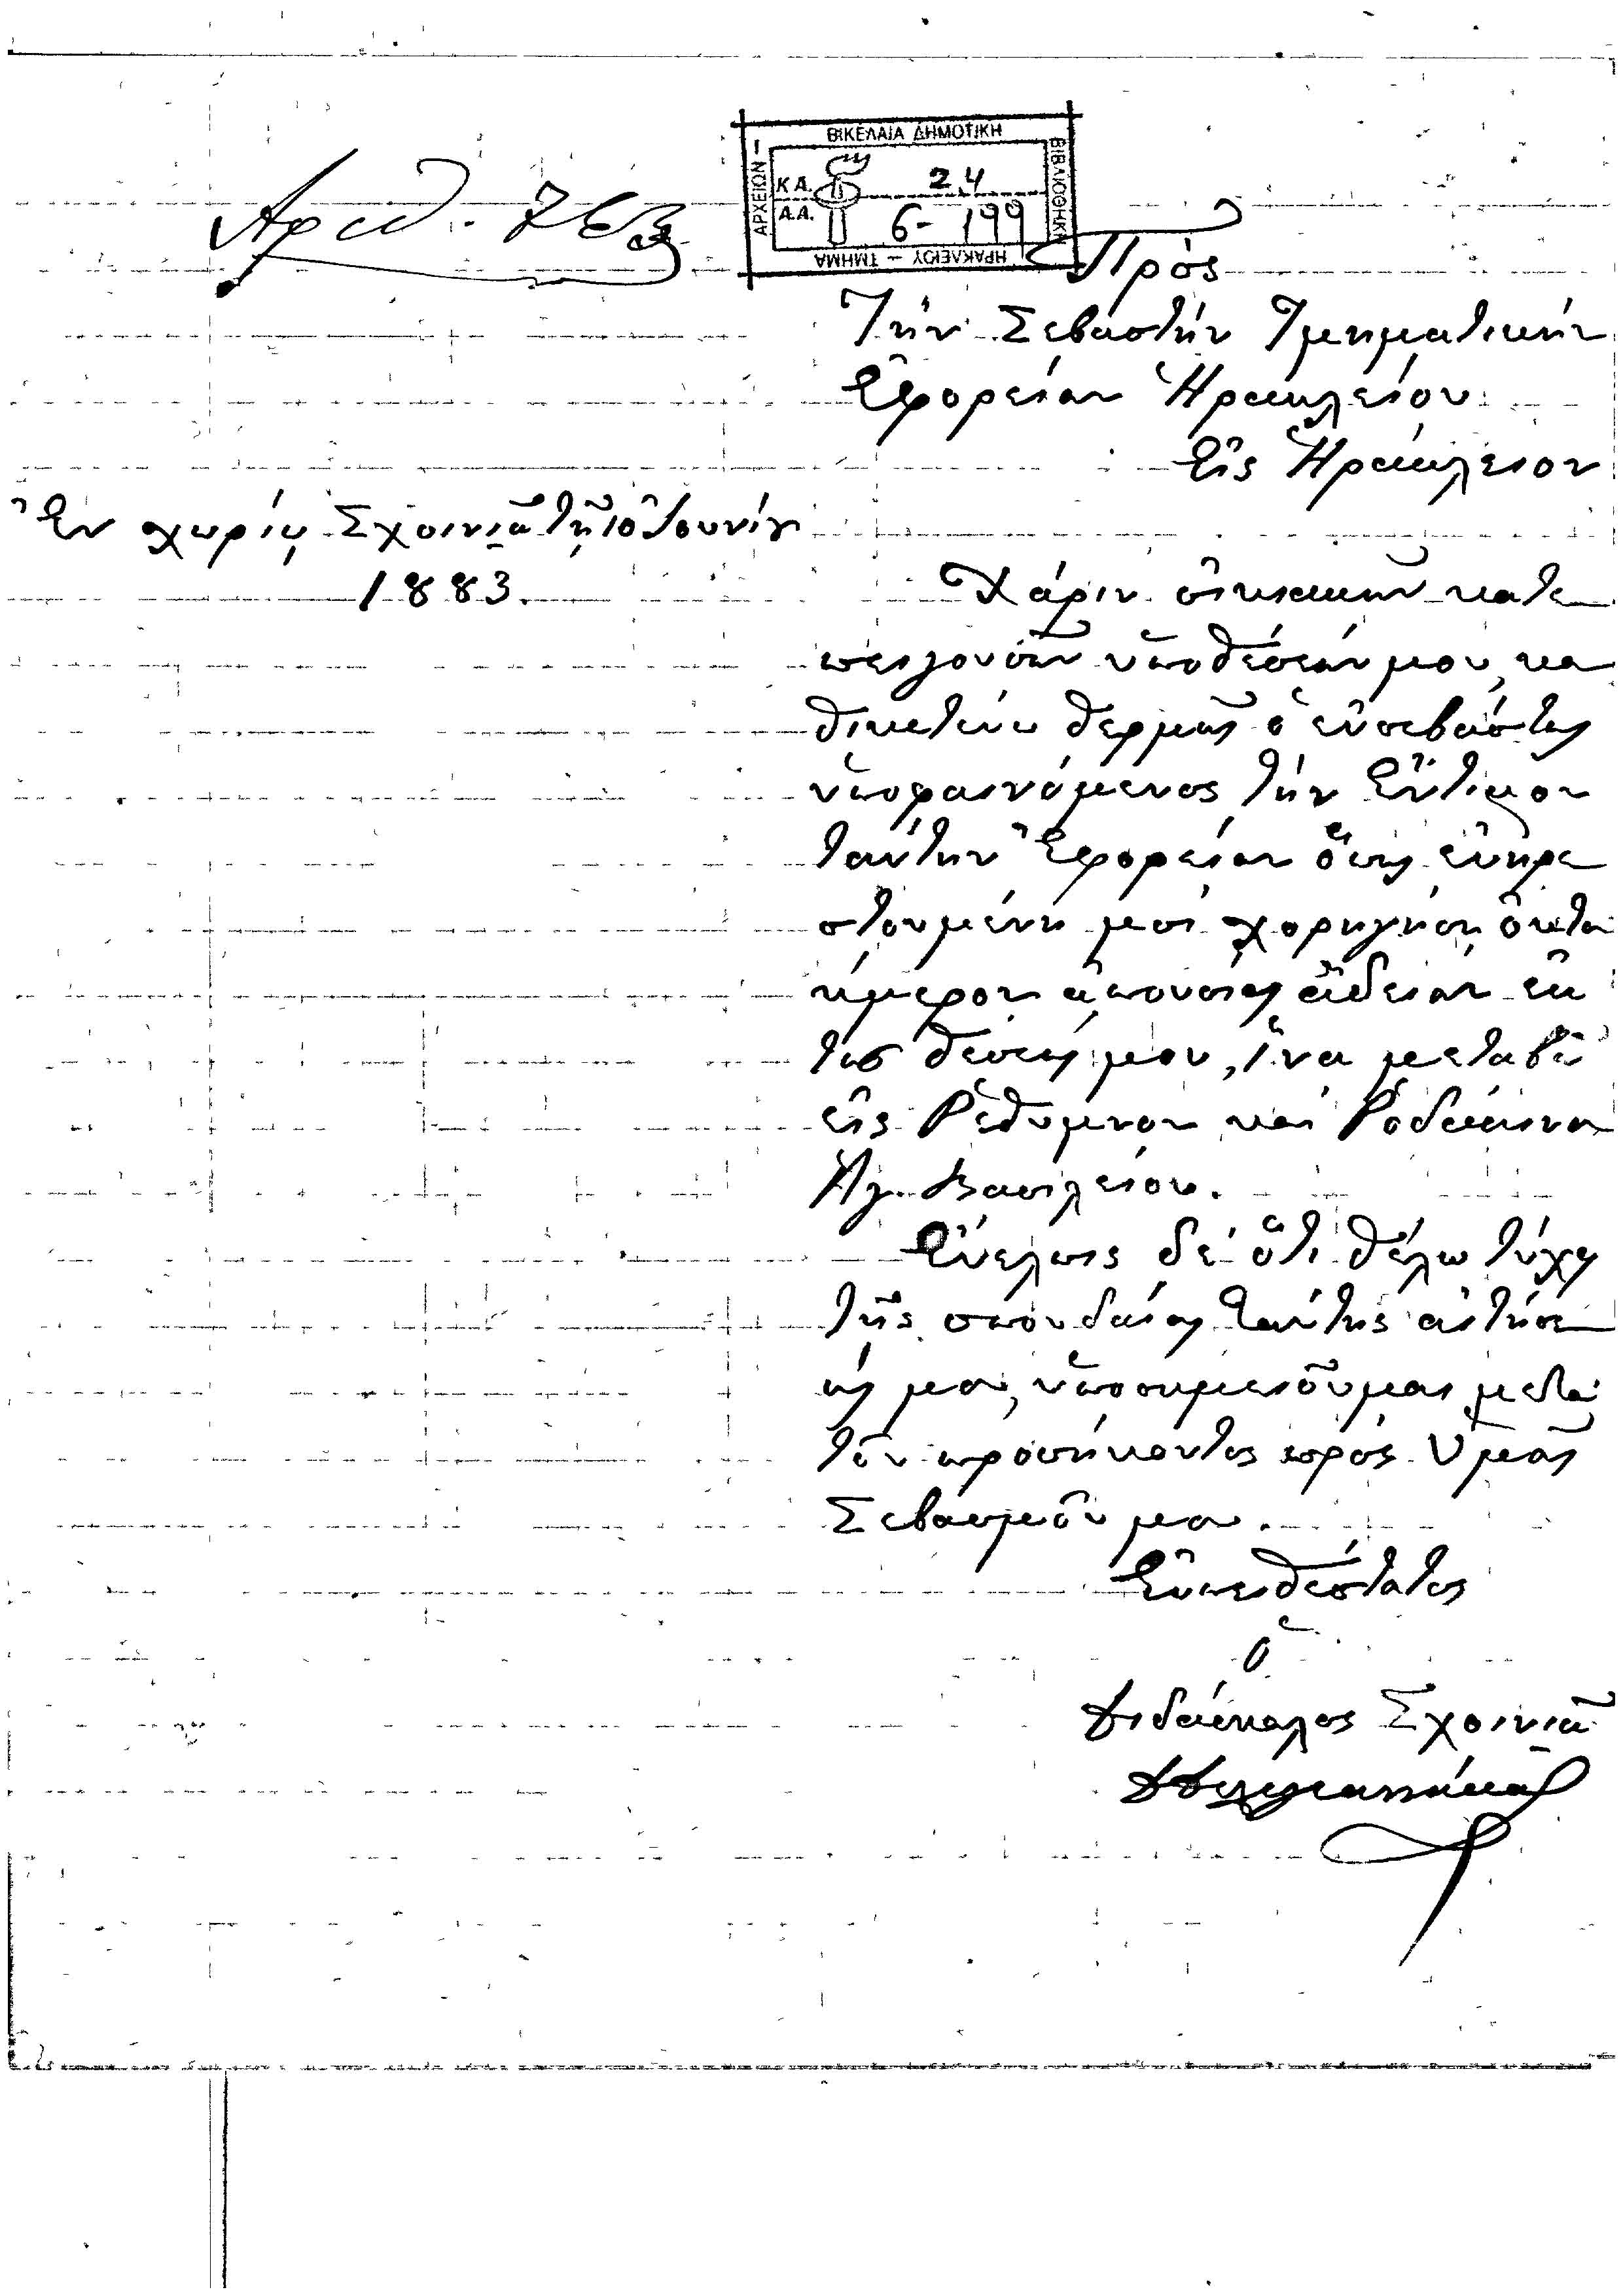 ΒΙΚΕΛΑΙΑ ΔΗΜΟΤΙΚΗ
ΒΙΒΛΙΟΘΗΚΗ
ΗΡΑΚΛΕΙΟΥ – ΤΜΗΜΑ
ΑΡΧΕΙΩΝ
Κ.Α. 24
Α.Α. 6-199
Ἀριθ. 763
Πρὸς
Τὴν Σεβαστὴν Τμηματικὴν
Ἐφορείαν Ἡρακλείου
Εἰς Ἡράκλειον
Ἐν χωρίῳ Σχοινιᾷ τῇ 10 Ἰουνίου
1883.
Χάριν οἰκιακῶν κατε
πειγουσῶν ὑποθέσεών μου, κα
θικετεύω θερμῶς ὁ εὐσεβάστως
ὑποφαινόμενος τὴν Ἔντιμον
ταύτην Ἐφορείαν ὅπως εὐηρε
στουμένη μοὶ χορηγήσῃ ὀκτα
ήμερον ἀπουσίας ἄδειαν ἐκ
τῆς θέσεώς μου, ἵνα μεταβῶ
εἰς Ῥέθυμνον καὶ Ῥοδάκινον
Ἁγ. Βασιλείου.
Εὔελπις δὲ ὅτι θέλω τύχῃ
τῆς σπουδαίας ταύτης αἰτήσε
ώς μου, ὑποσημειοῦμαι μετὰ
τοῦ προσήκοντος πρὸς Ὑμᾶς
Σεβασμοῦ μου.
Εὐπειθέστατος
Ὁ
Διδάσκαλος Σχοινιᾶ